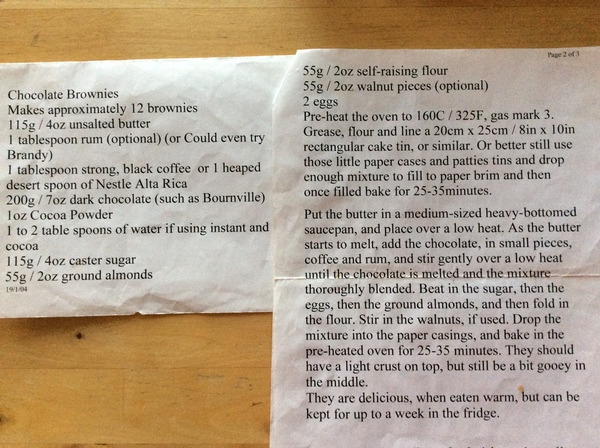 Chocolate Brownies
Makes approximately 12 brownies
115g / 4oz unsalted butter
1 tablespoon rum (optional) (or Could even try
Brandy)
1 tablespoon strong, black coffee or 1 heaped
desert spoon of Nestle Alta Rica
200g / 7oz dark chocolate (such as Bournville)
1oz Cocoa Powder
1 to 2 table spoons of water if using instant and
cocoa
115g / 4oz caster sugar
55g / 2oz ground almonds
19/1/04
Page 2 of 3
55g / 2oz self-raising flour
55g / 2oz walnut pieces (optional)
2 eggs
Pre-heat the oven to 160C / 325F, gas mark 3.
Grease, flour and line a 20cm x 25cm / 8in x 10in
rectangular cake tin, or similar. Or better still use
those little paper cases and patties tins and drop
enough mixture to fill to paper brim and then
once filled bake for 25-35minutes.
Put the butter in a medium-sized heavy-bottomed
saucepan, and place over a low heat. As the butter
starts to melt, add the chocolate, in small pieces,
coffee and rum, and stir gently over a low heat
until the chocolate is melted and the mixture
thoroughly blended. Beat in the sugar, then the
eggs, then the ground almonds, and then fold in
the flour. Stir in the walnuts, if used. Drop the
mixture into the paper casings, and bake in the
pre-heated oven for 25-35 minutes. They should
have a light crust on top, but still be a bit gooey in
the middle.
They are delicious, when eaten warm, but can be
kept for up to a week in the fridge.